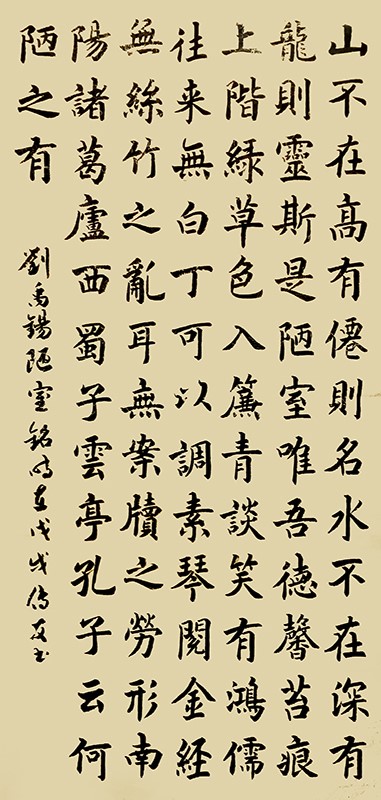 山不在高有僊則名水不在深有
龍則靈斯是陋室唯吾德馨苔痕
上階緑草色入簾青談笑有鴻儒
往来無白丁可以調素琴閱金經
無絲竹之亂耳無案牘之勞形南
陽諸葛廬西蜀子雲亭孔子云何
陋之有
劉禹錫陋室銘時在戊戌書